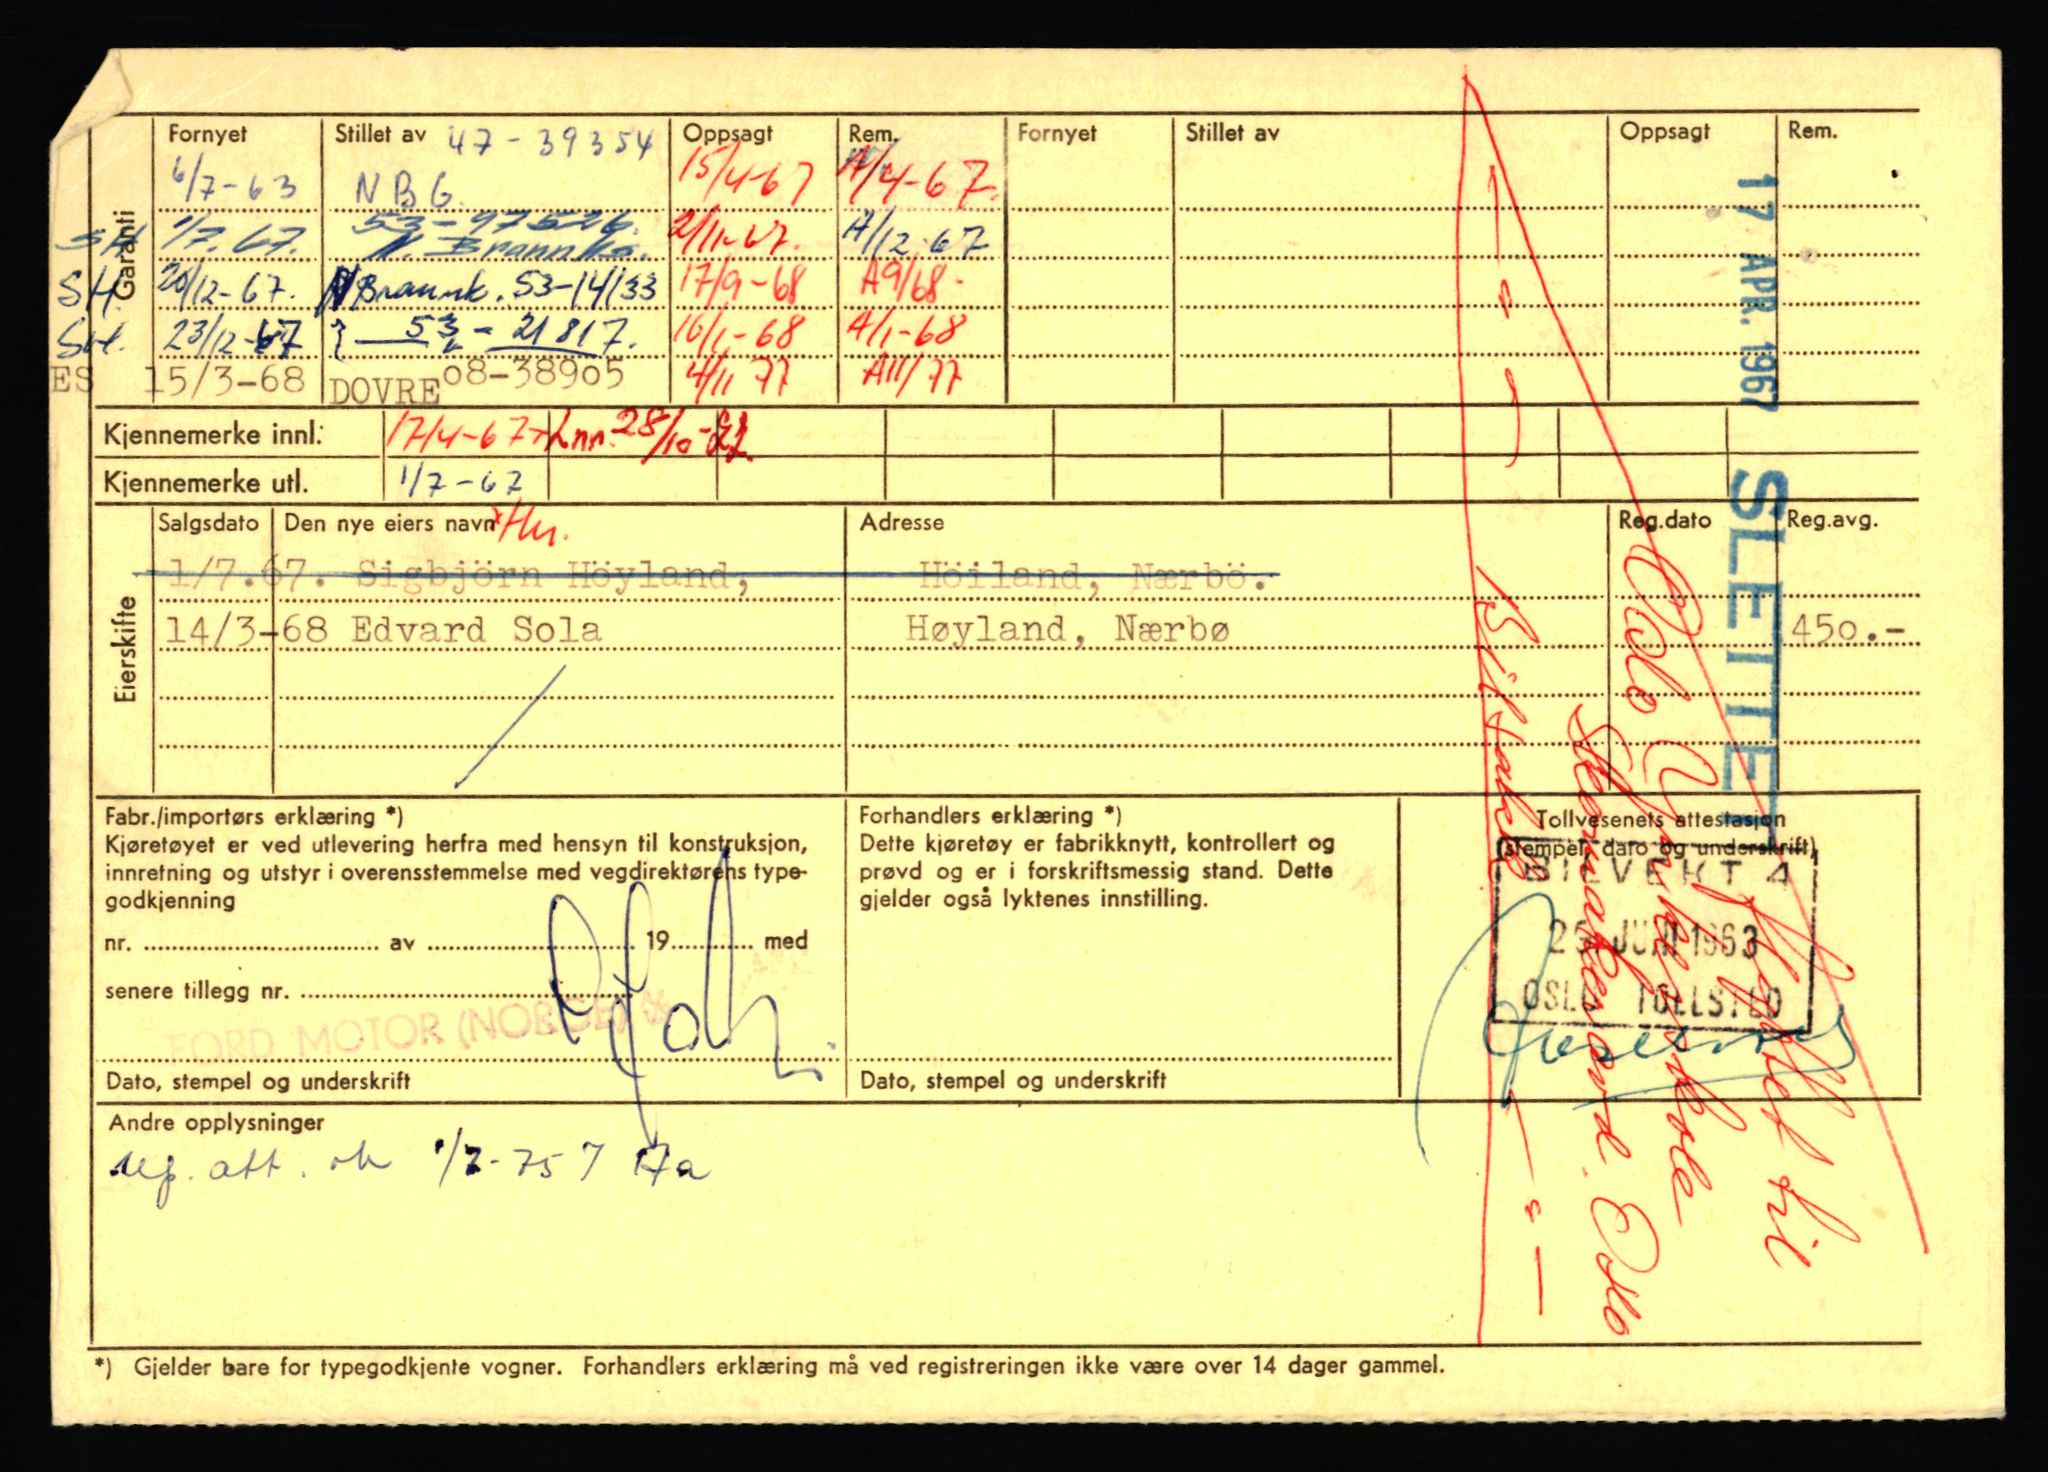 Fornyet Stillet av 47-39354 Oppsagt Rem. Fornyet Stillet av Oppsagt Rem.
Garanti
6/7-63 N B G. 15/4-67 A/4-67.
SH 1/7.67. 53-97526. N. Brannks. 2/11-67. A/12-67
SH. 20/12-67. N Brannk. 53-14133 17/9-68 A9/68-
23/12-67 53 - 21817. 16/1-68 A/1-68
ES 15/3-68 DOVRE 08-38905 4/11 77 A11/77
Kjennemerke innl.: 17/4-67 Inn. 28/10
Kjennemerke utl. 1/7-67
Eierskifte
Salgsdato Den nye eiers navn Adresse Reg.dato Reg.avg.
1/7.67. Sigbjörn Höyland, Höiland, Nærbö.
14/3-68 Edvard Sola Høyland, Nærbø 450.-
17 APR. 1967 SLETTET
Flyttet til
Oslo Yrkesskole
Stenakervard. Oslo
Fabr./importørs erklæring *)
Kjøretøyet er ved utlevering herfra med hensyn til konstruksjon,
innretning og utstyr i overensstemmelse med vegdirektørens type-
godkjenning
nr. av 19 med
senere tillegg nr.
FORD MOTOR (NORGE) A/S
Dato, stempel og underskrift
Forhandlers erklæring *)
Dette kjøretøy er fabrikknytt, kontrollert og
prøvd og er i forskriftsmessig stand. Dette
gjelder også lyktenes innstilling.
Dato, stempel og underskrift
Tollvesenets attestasjon
(stempel, dato og underskrift)
BILVEKT 4
JUNI 1963
OSLO TOLLSTED
Andre opplysninger
att. ok 1/7-75
*) Gjelder bare for typegodkjente vogner. Forhandlers erklæring må ved registreringen ikke være over 14 dager gammel.